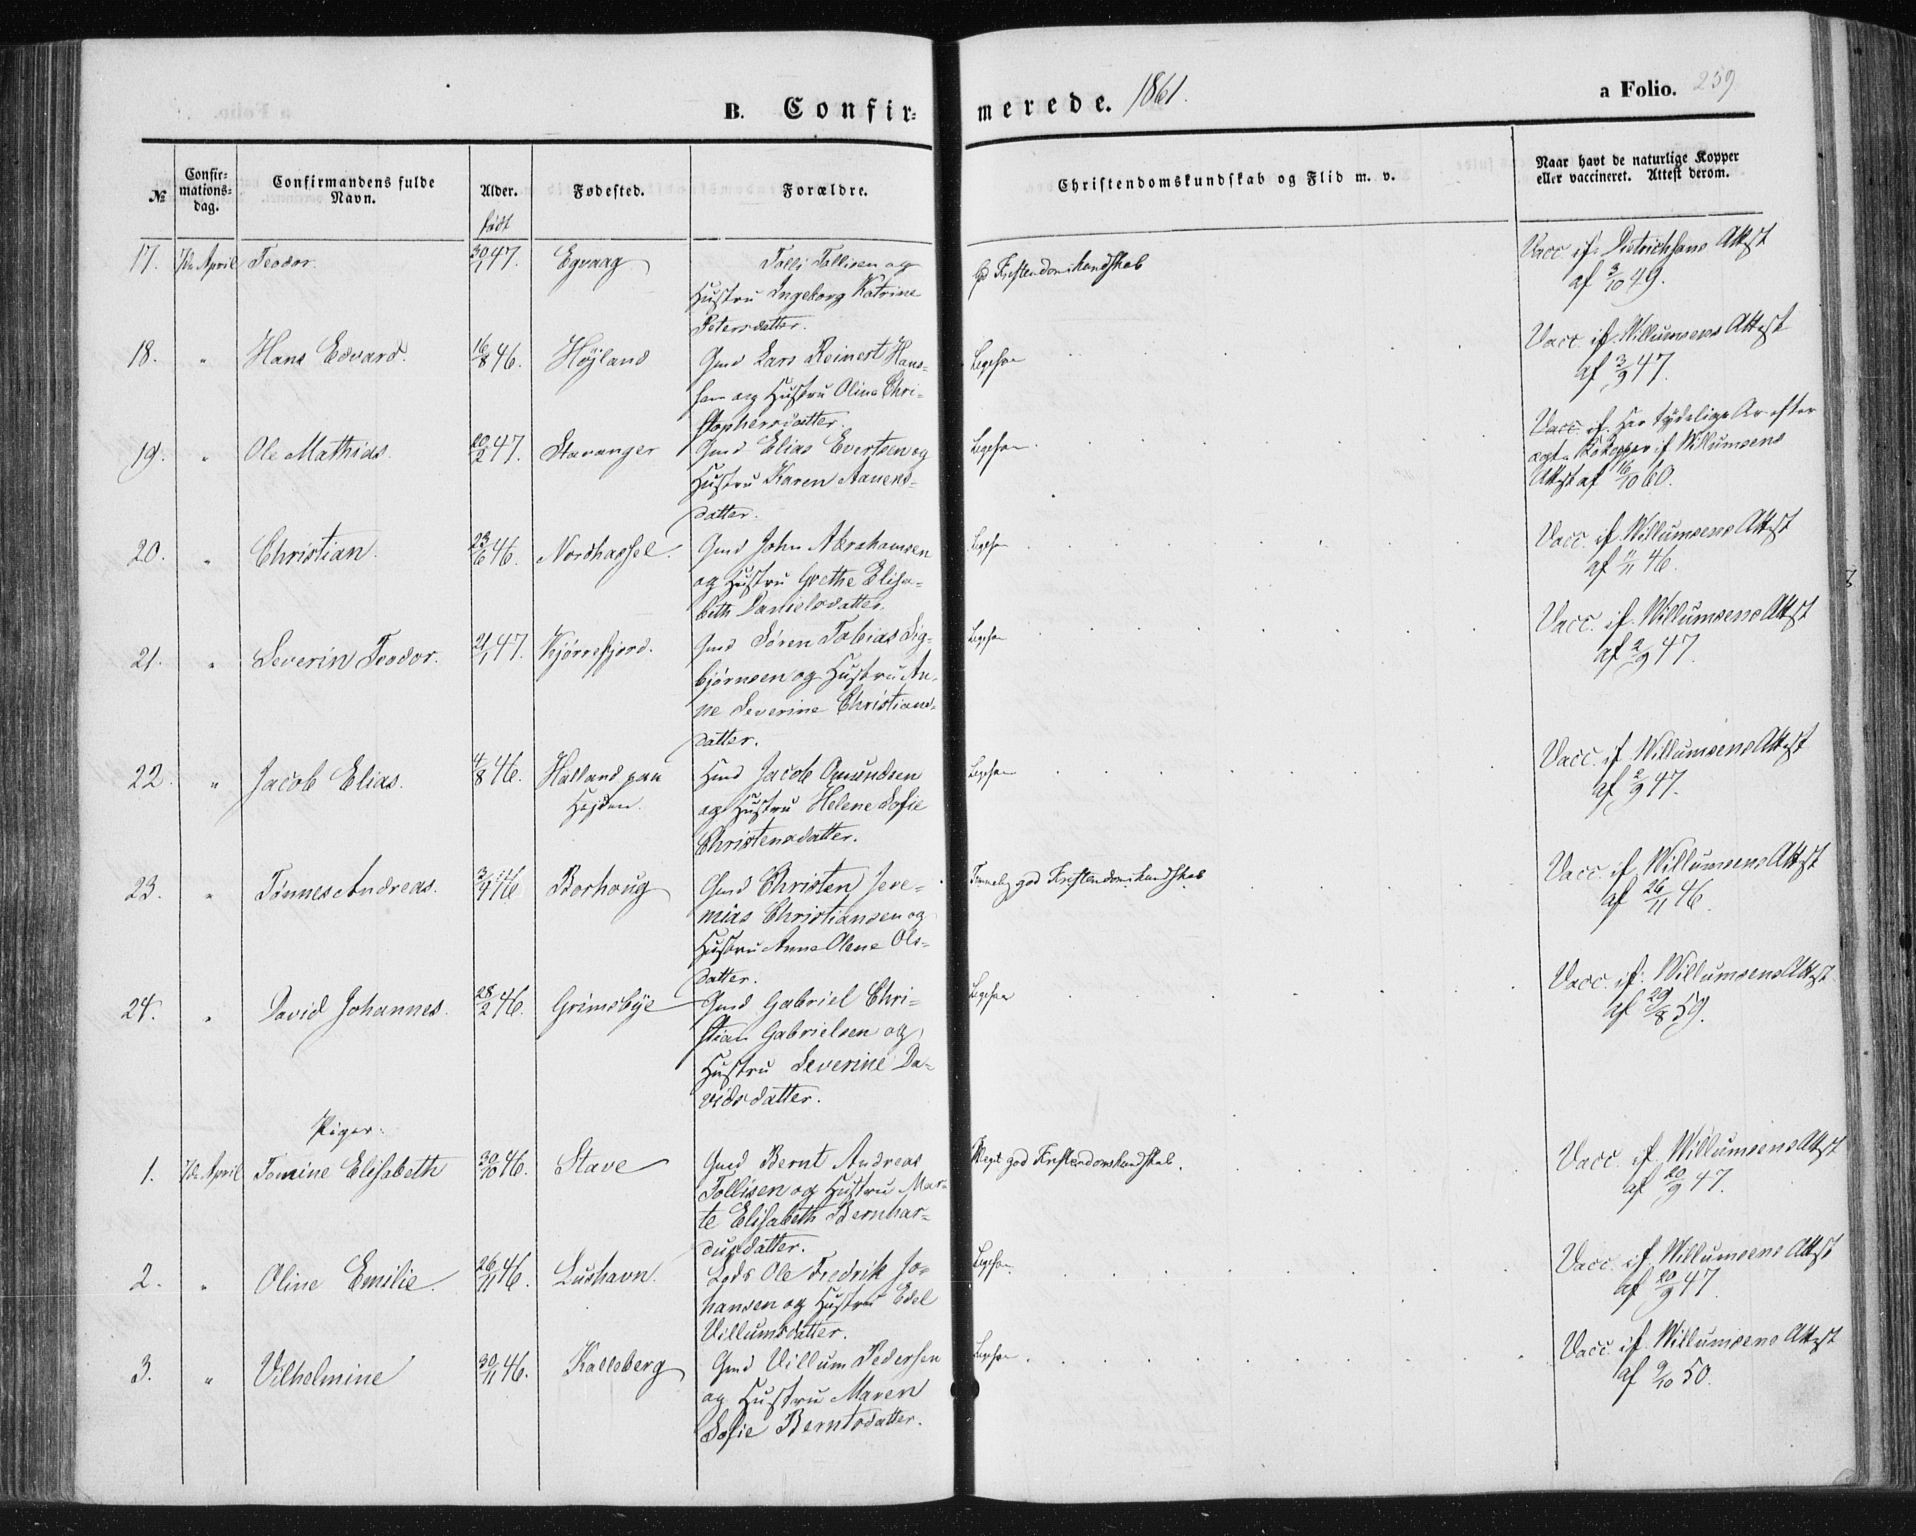 B. Confirmerede. 1861.
a Folio. 259
№
Confirmationsdag.
Confirmandens fulde Navn.
Alder.
født
Fødested.
Forældre.
Christendomskundskab og Flid m. v.
Naar havt de naturlige Kopper eller vaccineret. Attest derom.
17. 7de April Teodor. 30/1 47. Egvaag Tolli Tollisen og
Hustru Ingeborg Katrine
Petersdatter.
gd Kristendomskundskab
Vacc. if. Dietrichsons Attest
af 3/10 49.
18. " Hans Edvard. 16/8 46. Højland Gmd Lars Reinert Han-
sen og Hustru Oline Chri-
stophersdatter
Ligesaa
Vacc. if. Willumsens Attest
af 3/9 47.
19. " Ole Mathias. 20/2 47. Stavanger Gmd Elias Evertsen og
Hustru Karen Aanens-
datter.
Ligesaa
Vacc. if. har tydelige Ar efter
ægte Kokopper if Willumsens
Attest af 16/10 60.
20. " Christian. 23/6 46. Nordhassel Gmd John Abrahamsen
og Hustru Grethe Elisa-
beth Danielsdatter.
Ligesaa
Vacc. if Willumsens Attest
af 11 46.
21. " Severin Teodor. 21/1 47. Kjørrefjord. Gmd Søren Tobias Sig-
bjørnsen og Hustru An-
ne Severine Christians-
datter.
Ligesaa
Vacc. if. Willumsens Attest
af 2/9 47.
22. " Jacob Elias. 4/8 46. Halland paa
Hejden. Hmd Jacob Omundsen
og Hustru Helene Sofie
Christensdatter.
Ligesaa
Vacc. if Willumsens Attest
af 2/9 47.
23. " Tønnes Andreas. 3/9 46 Borhoug Gmd Christen Jere-
mias Christiansen og
Hustru Anne Olene Ols-
datter.
Temmelig god Kristendomskundskab
Vacc. if Willumsens Attest
af 26/11 46.
24. " David Johannes. 28/2 46. Grimsbye Gmd Gabriel Chri-
stian Gabrielsen og
Hustru Severine Da-
vidsdatter.
Ligesaa
Vacc. if: Willumsens Attest
af 29/8 59.
Piger.
1. 7de April Tomine Elisabeth 30/10 46. Stave Gmd Bernt Andreas
Tollisen og Hustru Mar-
te Elisabeth Bernhar-
dusdatter.
Meget god Kristendomskundskab.
Vacc. if. Willumsens Attest
af 20/9 47.
2. " Oline Emilie. 26/11 46. Lushavn. Lods Ole Fredrik Jo-
hansen og Hustru Edel
Villumsdatter.
Ligesaa.
Vacc. if. Willumsens Attest
af 20/9 47.
3. " Vilhelmine 30/11 46. Kalleberg Gmd Villum Pedersen
og Hustru Maren
Sofie Berntsdatter.
Ligesaa.
Vacc. if Willumsens Attest
af 9/10 50.